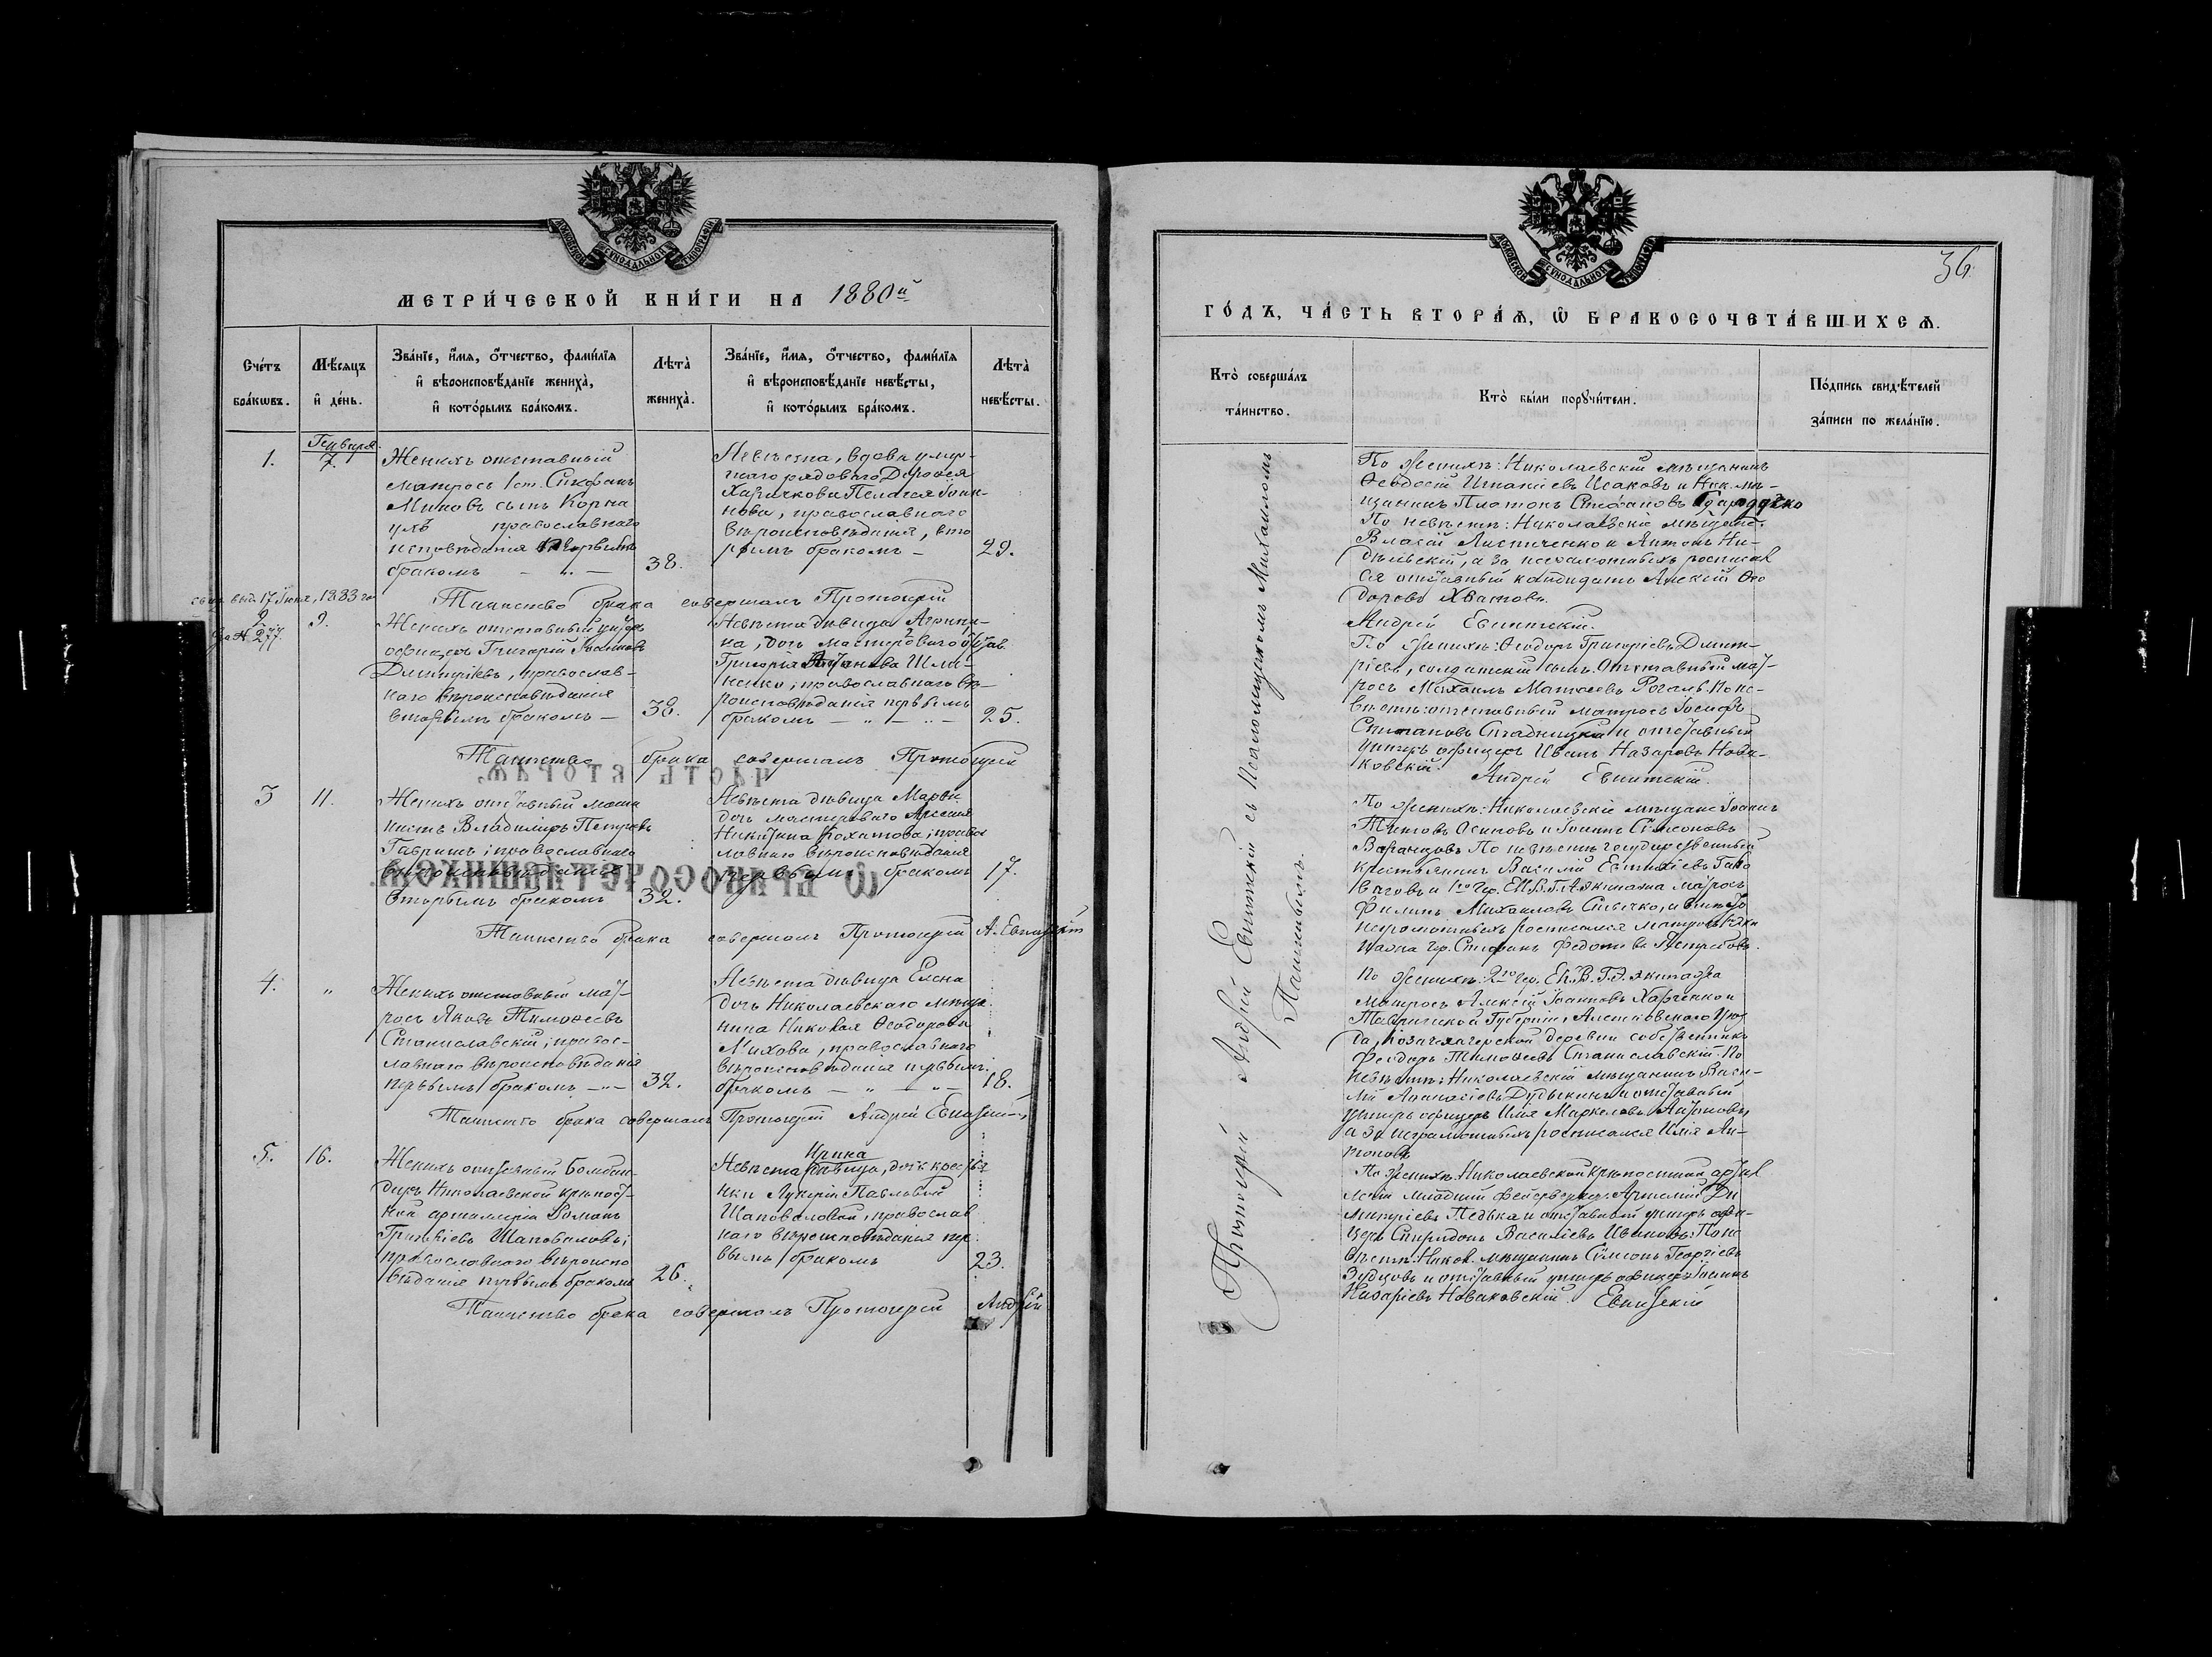 МОСКОВСКОЙ СѴНОДАЛЬНОЙ ТИПОГРАФІИ
МЕТРИ́ЧЕСКОЙ КНИ́ГИ НА 1880й
Сче́тъ бра́кѡвъ.
Мѣ́сяцъ и҆ де́нь.
Зва́нїе, и҆́мѧ, ѻ҆́тчество, фами́лїѧ и҆ вѣроисповѣ́данїе жениха̀, и҆ кото́рымъ бра́комъ.
Лѣ́та̀ жениха̀.
Зва́нїе, и҆́мѧ, ѻ҆́тчество, фами́лїѧ и҆ вѣроисповѣ́данїе невѣ́сты, и҆ кото́рымъ бра́комъ.
Лѣ́та̀ невѣ́сты.
Генваря
1.
7.
Женихъ отставный
матросъ 1 ст. Стефанъ
сынъ
православнаго
исповѣданія первымъ
бракомъ
38.
Невѣста, вдова умер-
шаго рядоваго Дорофея
Харичкова Пелагея Іоан-
нова, православнаго
вѣроисповѣданія, вто
рымъ бракомъ –
29.
Таинство брака совершалъ Протоіерей
выд. 17 Іюня, 1883 го
за № 277.
2.
9.
Женихъ отставный унтеръ
офицеръ Григорій Іоанновъ
Димитріевъ, православ-
наго вѣроисповѣданія
вторымъ бракомъ –
38.
Невѣста дѣвица Агрипи-
на, дочь мастероваго
Григорія
православнаго вѣ-
роисповѣданія первымъ
бракомъ – „ –
25.
Таинство брака совершалъ Протоіерей
3
11.
Женихъ отставный маши
нистъ Владиміръ Петровъ
православнаго
вѣроисповѣданія
вторымъ бракомъ
32.
Невѣста дѣвица Марѳа
дочь мастероваго Арсенія
Никитина правос
лавнаго вѣроисповѣданія
первымъ бракомъ
17.
Таинство брака совершалъ Протоіерей А. Евнитскій
4.
„
Женихъ отставный мат-
росъ Яковъ Тимоѳеевъ
Станиславскій, правос-
лавнаго вѣроисповѣданія
первымъ бракомъ –„–
32.
Невѣста дѣвица Елена
дочь Николаевскаго мѣща-
нина Николая Ѳеодорова
Михова, православнаго
вѣроисповѣданія первымъ
бракомъ – „ – „ –
18.
Таинство брака совершалъ Протоіерей Андрей Евнитскій
5.
16.
Женихъ отставный Бомбан-
диръ Николаевской крѣпост-
ной артиллеріи Романъ
Шаповаловъ,
православнаго вѣроиспо
вѣданія первымъ бракомъ
26.
Ирина
Невѣста дѣвица, дочь крестья
нки Лукеріи Павловой
Шаповаловой, православ
наго вѣроисповѣданія пер
вымъ бракомъ
23.
Таинство брака совершалъ Протоіерей Андрей
МОСКОВСКОЙ СѴНОДАЛЬНОЙ ТИПОГРАФІИ
36.
ГО́ДЪ, ЧА́СТЬ ВТОРА́Ѧ, Ѽ БРАКОСОЧЕТА́ВШИХСѦ.
Кто̀ соверша́лъ та́инство.
Кто̀ бы́ли порꙋчи́тели.
По́дпись свидѣ́телей за́писи по жела́нїю.
Протоіерей Андрей Евнитскій съ Псаломщикомъ Михаиломъ
По женихѣ: Николаевскій мѣщанинъ
Ѳеодосій Игнатіевъ Исаковъ и Ник. мѣ-
щанинъ Платонъ Стефановъ
По невѣстѣ: Николаевскіе мѣщане
Власій Листиченко и Антонъ
а за неграмотныхъ росписал
ся отставный кандидатъ Алексій Ѳео
доровъ Хватовъ.
Андрей Евнитскій.
По женихѣ: Ѳеодоръ Григоріевъ Димит-
ріевъ, солдатскій сынъ. Отставный мат-
росъ Михаилъ Матѳеевъ Рогаль. По не-
вѣстѣ: отставный матросъ Іосифъ
Степановъ и отставный
унтеръ офицеръ Иванъ Назаровъ Нова-
ковскій.
Андрей Евнитскій.
По женихѣ: Николаевскіе мѣщане Іоаннъ
Титовъ Осиповъ и Іоаннъ Сѵмеоновъ
По невѣстѣ государственный
крестьянинъ Василій
и 1го Чер. Е.И.В.Г.А. Экипажа матросъ
Филипъ Михаиловъ а вмѣсто
неграмотныхъ росписался матросъ Экі
пажа Чер. Стефанъ Федотовъ
По женихѣ: 2го Чер. Е.И.В.Г.А. экипажа
матросъ Алексій Іоанновъ Харченко и
Таврической Губерніи, Алешковскаго уѣз
да, деревни собственникъ
Феодоръ Тимоѳеевъ Станиславскій. По
невѣстѣ: Николаевскій мѣщанинъ Васи-
лій Аѳанасіевъ и отставный
унтеръ офицеръ Илія Маркеловъ Антоновъ,
а за неграмотныхъ росписался Илія Ан-
тоновъ
По женихѣ: Николаевской крѣпостной артил
леріи младшій фейерверкеръ Артемій Ди
митріевъ и отставный унтеръ офи-
церъ Спиридонъ Василіевъ Ивановъ: По не
вѣстѣ: Никол. мѣщанинъ Сѵмеонъ Георгіевъ
и отставный унтеръ офицеръ Іоаннъ
Назаріевъ Новаковскій. Евнитскій